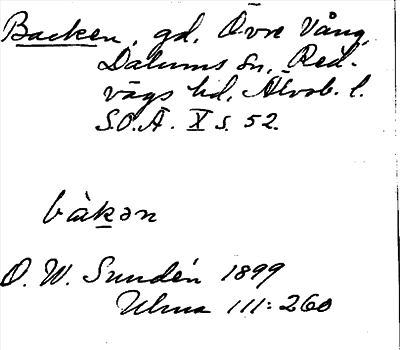 Backen, gd, Övre Vång,
Dalums sn, Red-
vägs hd, Älvsb. l.
S.O.Ä. X s. 52.
bàkən
O. W. Sundén 1899
Ulma 111:260